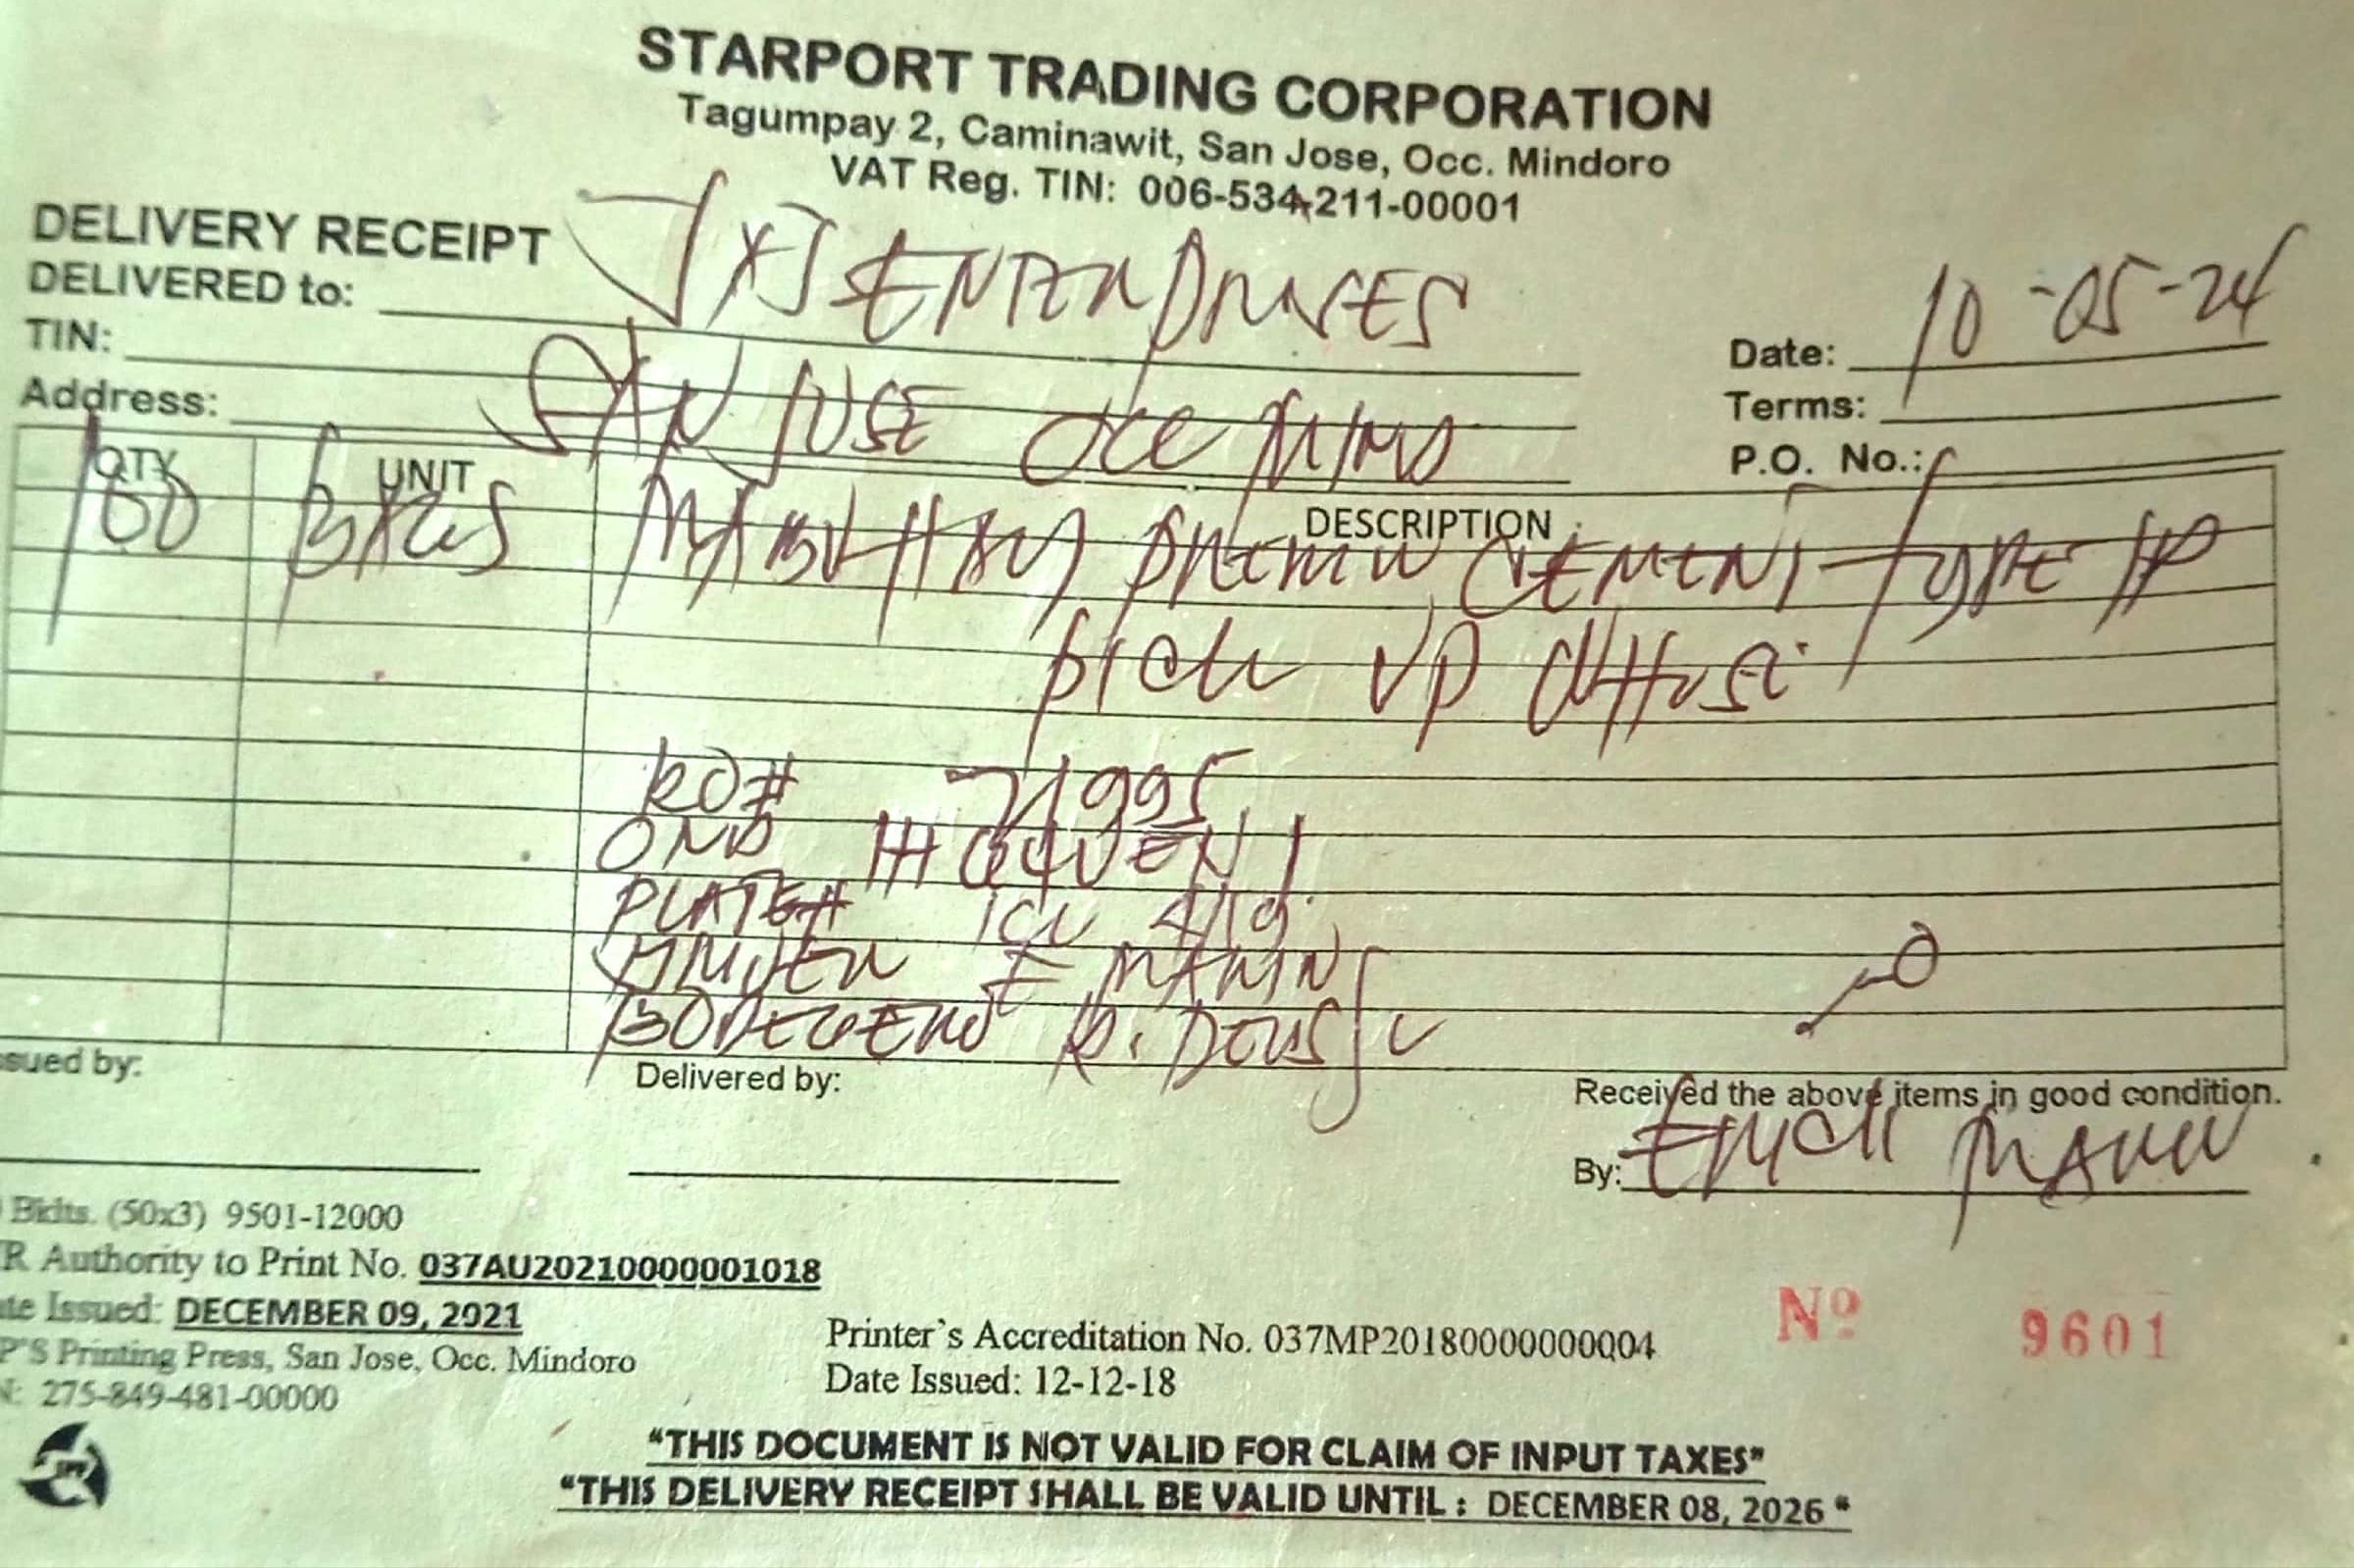 STARPORT TRADING CORPORATION
Tagumpay 2, Caminawit, San Jose, Occ. Mindoro
VAT Reg. TIN: 006-534-211-00001
DELIVERY RECEIPT
DELIVERED to: JXJ ENTERPRISES
TIN:
Address: SAN JOSE OCC MINO
Date: 10-05-24
Terms:
P.O. No.:
QTY UNIT DESCRIPTION
100 BAGS PREMIUM CEMENT TYPE 1P
PICK UP
RO# 71995
PLATE# 419
DRIVER E MARIN
BODEGERO R.
sued by:
Delivered by:
Received the above items in good condition.
By: ERICH MARIN
Bklts. (50x3) 9501-12000
R Authority to Print No. 037AU20210000001018
te Issued: DECEMBER 09, 2021
P'S Printing Press, San Jose, Occ. Mindoro
N: 275-849-481-00000
Printer's Accreditation No. 037MP20180000000004
Date Issued: 12-12-18
Nº 9601
"THIS DOCUMENT IS NOT VALID FOR CLAIM OF INPUT TAXES"
"THIS DELIVERY RECEIPT SHALL BE VALID UNTIL : DECEMBER 08, 2026 "